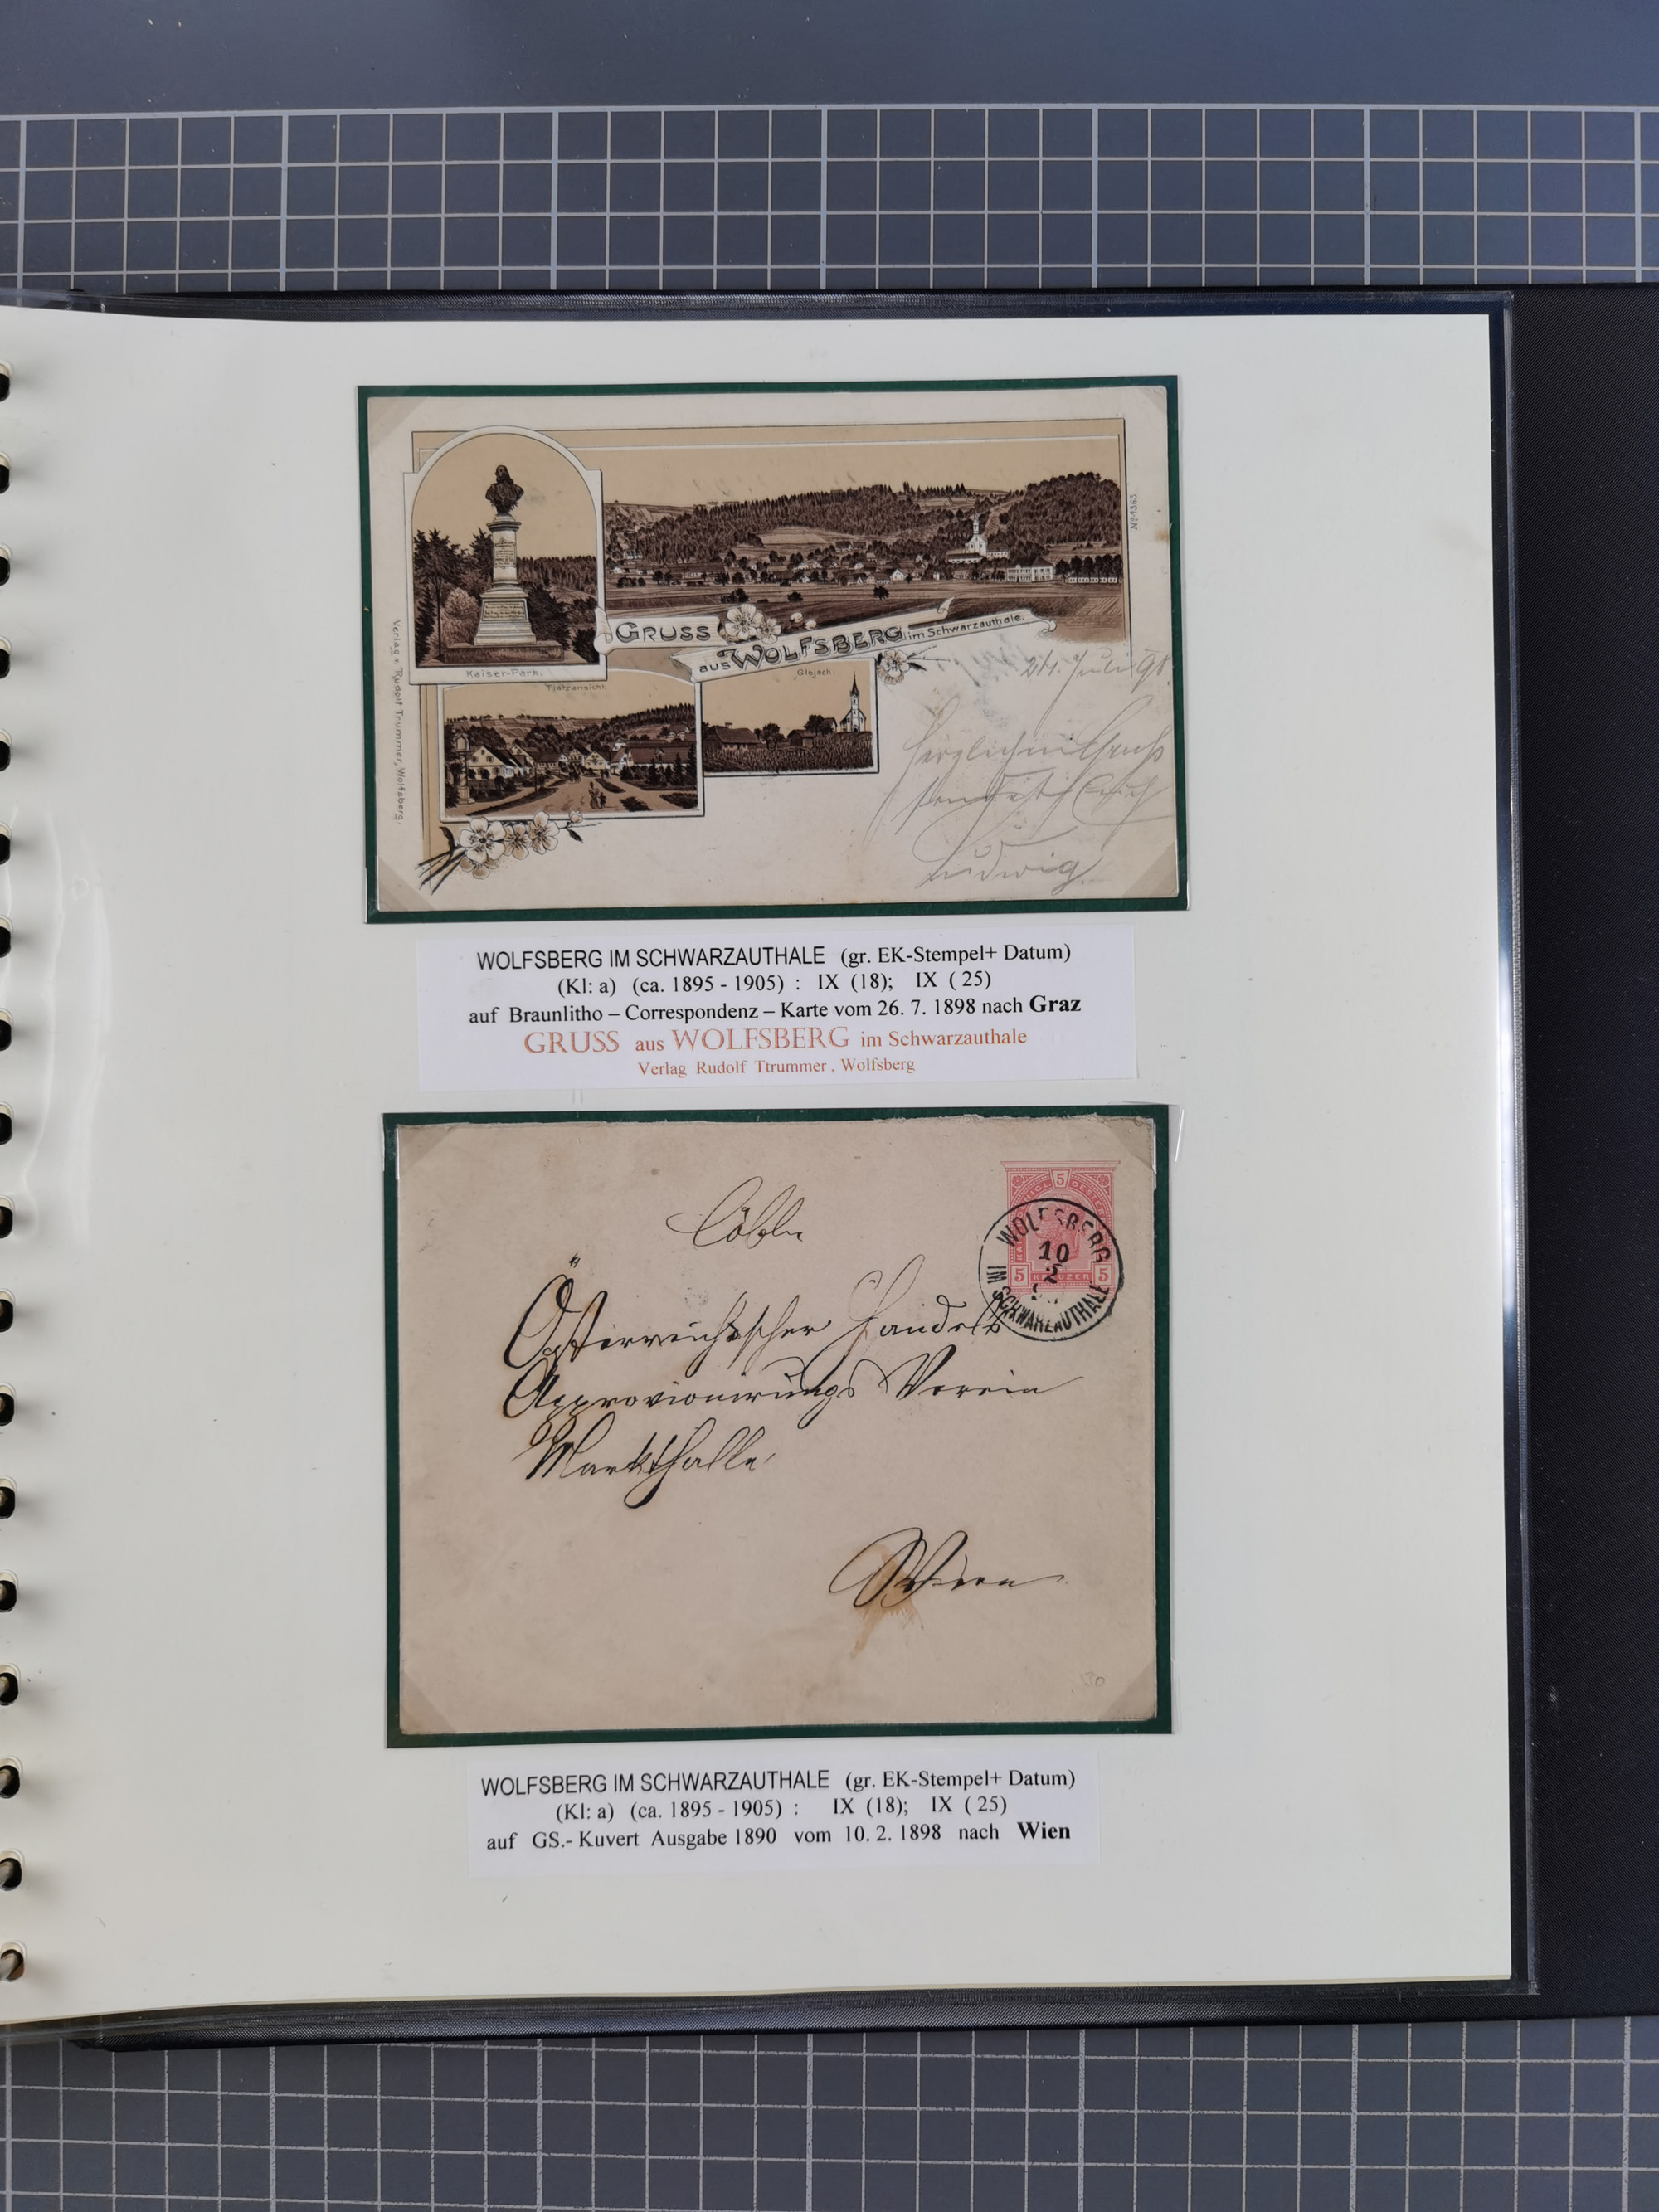 Kaiser-Park.
Nº 1363.
GRUSS
aus WOLFSBERG im Schwarzauthale.
Platzansicht.
Glojach.
Verlag v. Rudolf Trummer, Wolfsberg.
24. Juli 98.
Herzlichen Gruß
sendet Euch
Ludwig.
WOLFSBERG IM SCHWARZAUTHALE (gr. EK-Stempel+ Datum)
(Kl: a) (ca. 1895 - 1905) : IX (18); IX ( 25)
auf Braunlitho – Correspondenz – Karte vom 26. 7. 1898 nach Graz
GRUSS aus WOLFSBERG im Schwarzauthale
Verlag Rudolf Ttrummer , Wolfsberg
5
5 KREUZER 5
WOLFSBERG
10
2
IM SCHWARZAUTHALE
Löbl.
Österreichischer Handels
Approvionirungs Verein
Markthalle
Wien
130
WOLFSBERG IM SCHWARZAUTHALE (gr. EK-Stempel+ Datum)
(Kl: a) (ca. 1895 - 1905) : IX (18); IX ( 25)
auf GS.- Kuvert Ausgabe 1890 vom 10. 2. 1898 nach Wien